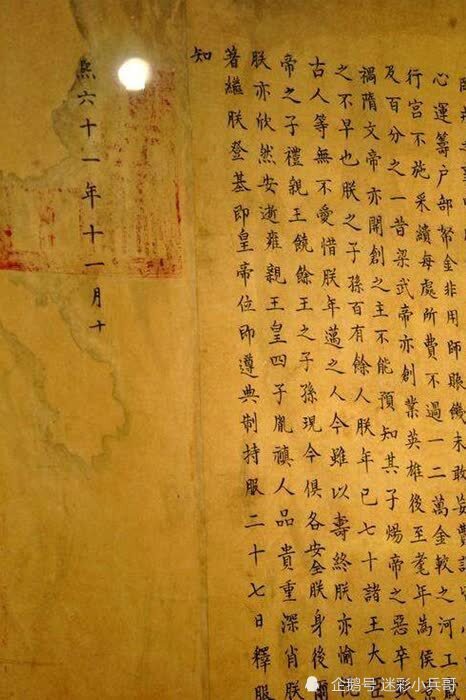 心運籌戶部帑金非用師賑饑未敢妄費
行宮不施采繢每處所費不過一二萬金較之河工
及百分之一昔梁武帝亦創業英雄後至耄年為侯
禍隋文帝亦開創之主不能預知其子煬帝之惡卒
之不早也朕之子孫百有餘人朕年已七十諸王大臣
古人等無不愛惜朕年邁之人今雖以壽終朕亦愉
帝之子禮親王饒餘王之子孫現今俱各安全朕身後爾
朕亦欣然安逝雍親王皇四子胤禛人品貴重深肖朕
著繼朕登基即皇帝位即遵典制持服二十七日釋服
知
熙六十一年十一月十
企鹅号 迷彩小兵哥